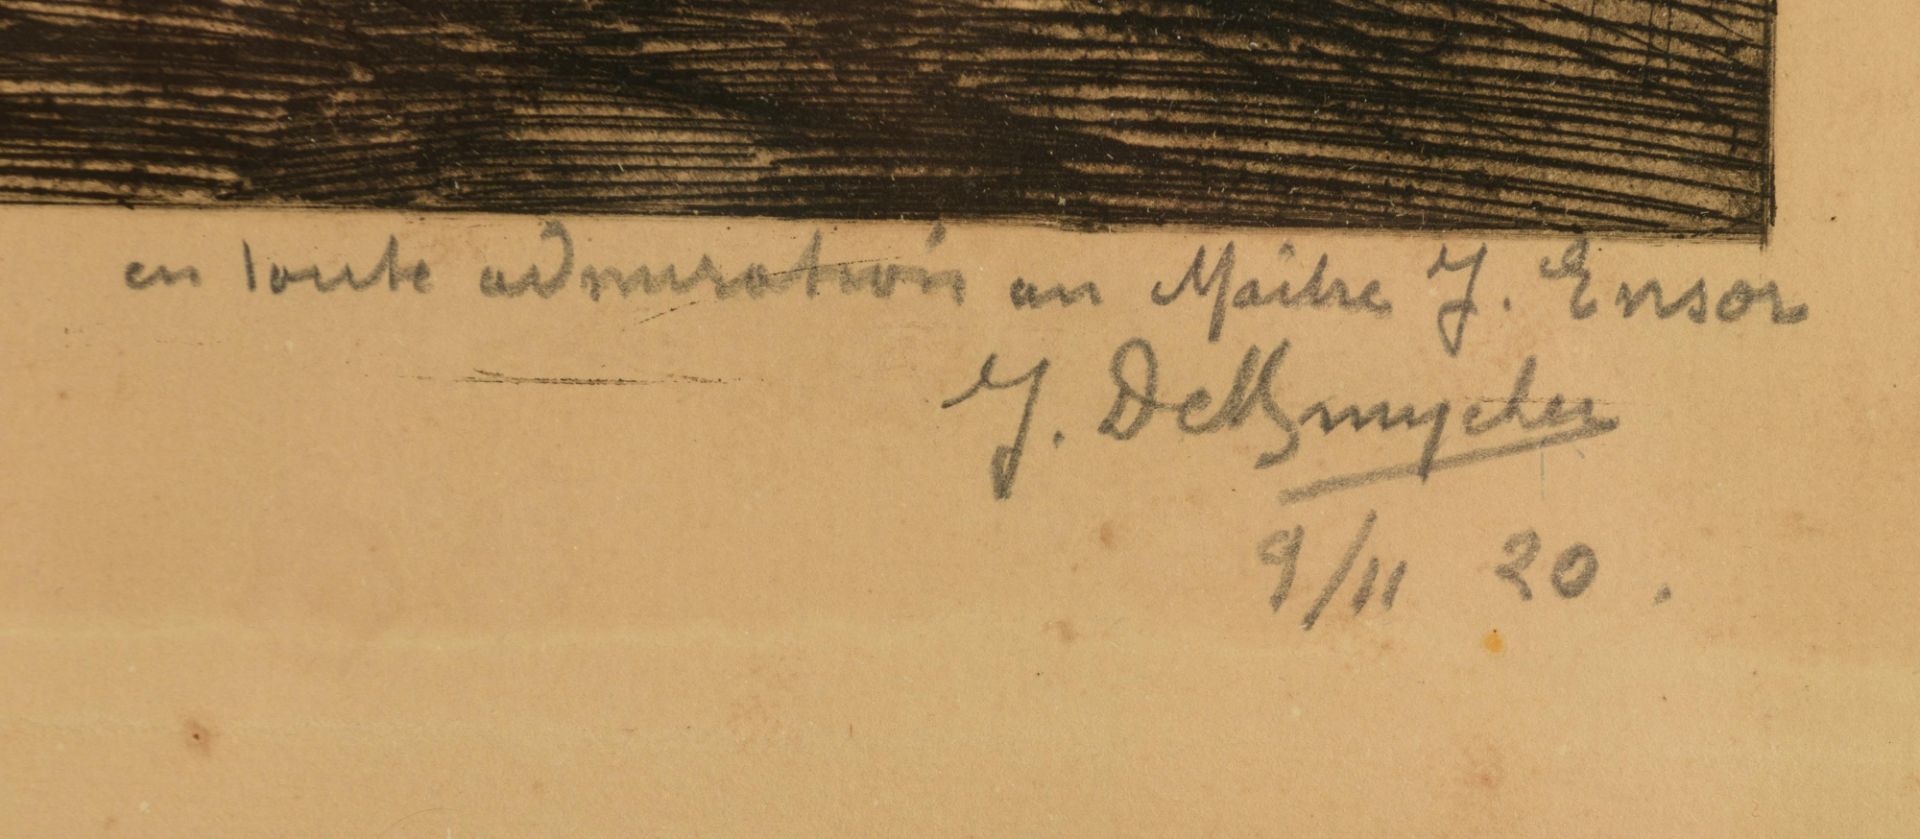 en toute admiration au Maître J. Ensor
J. De Bruycker
9/11 20.